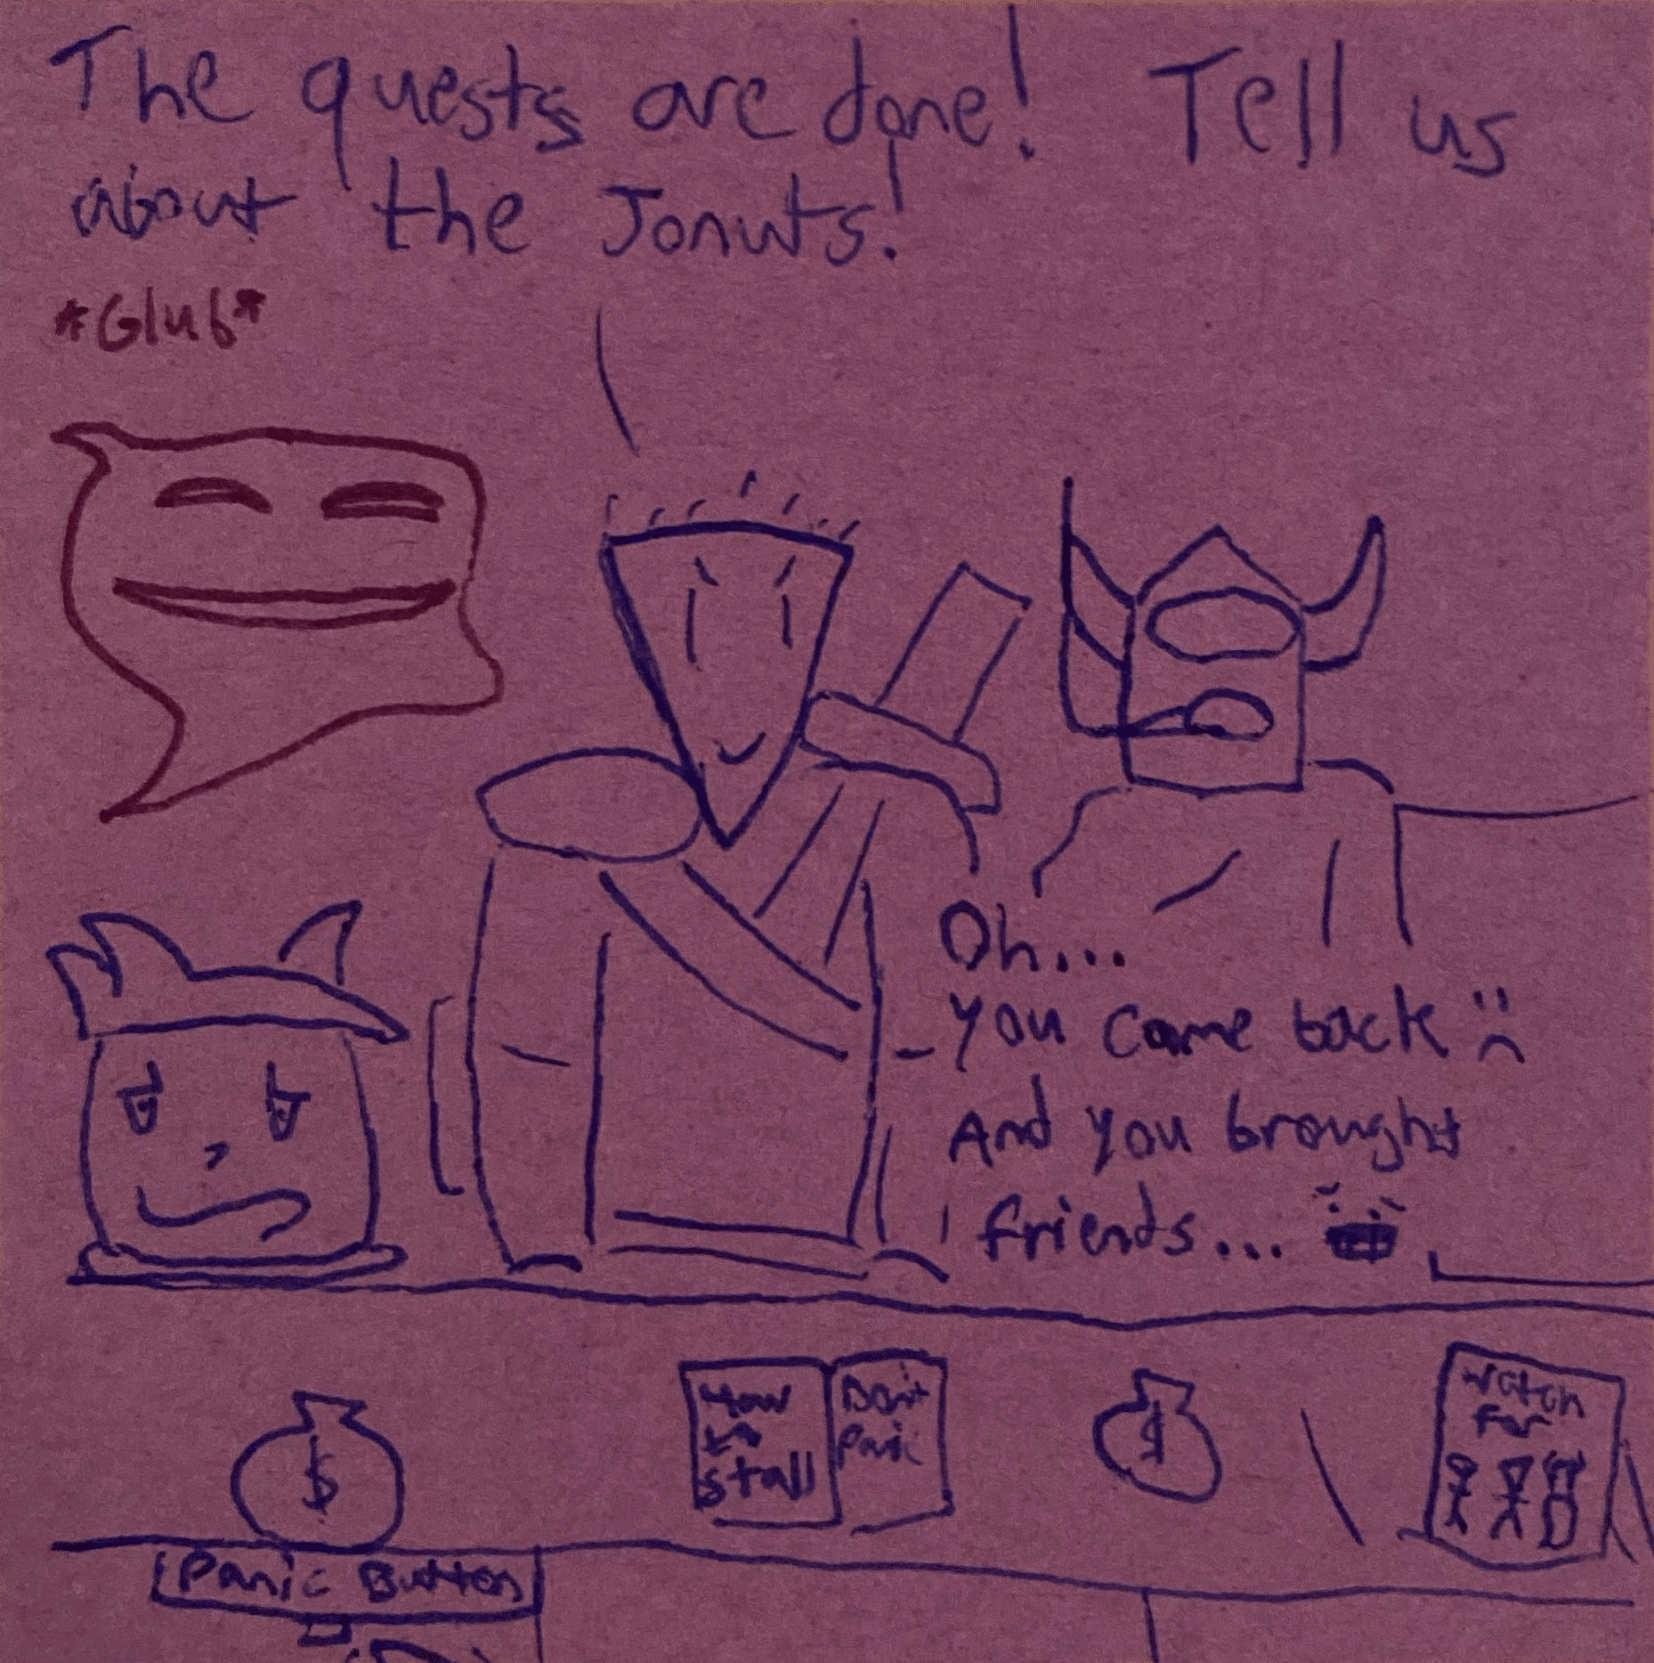 The quests are done! Tell us
about the Jonuts!
*Glub*
Oh...
You came back :(
And you brought
friends...
$
How
to
Stall
Don't
Panic
$
Watch
For
Panic Button